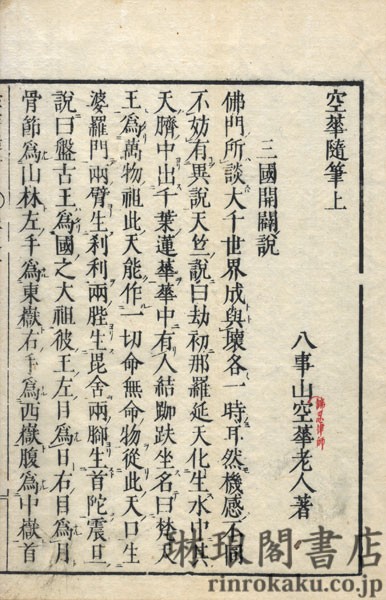 空華隨筆上
八事山空華老人著
三國開闢說
佛門所談大千世界成與壞各一時耳然機感不同
不妨有異說天竺說曰劫初那羅延天化生水中其
天臍中出千葉蓮華華中有人結跏趺坐名曰梵天
王為萬物祖此天能作一切命無命物從此天口生
婆羅門兩臂生刹利兩髀生毘舍兩腳生首陀震旦
說曰盤古王為國之大祖彼王左目為日右目為月
骨節為山林左手為東嶽右手為西嶽腹為中嶽首
琳琅閣書店
rinrokaku.co.jp